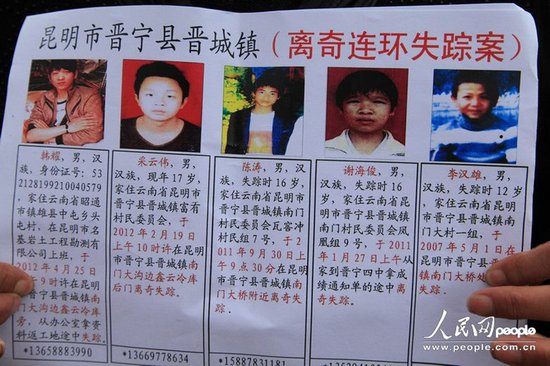 昆明市晋宁县晋城镇（离奇连环失踪案）
韩耀，男，汉
族，身份证号：53
2128199210040579
，家住云南省昭通
市镇雄县中屯乡头
屯村，在昆明市名
基岩土工程勘测有
限公司上班，于
2012年4月25日
9时许在昆明
市晋宁县晋城镇南
门大沟边鑫云冷库
旁，从办公室拿资
料返工地途中失踪
*13658883990
采云伟，男，汉
族，现年17岁，
家住云南省昆明市
晋宁县晋城镇富有
村民委员会，于
2012年2月19日
上午10时许在昆明
市晋宁县晋城镇南
门大沟边鑫云冷库
后门离奇失踪。
*13669778634
陈涛，男，汉
族，失踪时16岁，
家住云南省昆明市
晋宁县晋城镇南门
村民委员会瓦窑冲
村民组7号，于2
011年9月30日上午
9点30分在昆明市
晋宁县晋城镇南门
大桥附近离奇失
踪。
*15887831181
谢海俊，男，
汉族，失踪时16
岁，家住云南省昆
明市晋宁县晋城镇
南门村民委员会凤
凰组9号，于2011
年1月27日上午从
家到晋宁四中拿成
绩通知单的途中离
奇失踪。
李汉雄，男，
汉族，失踪时12岁
，家住云南省昆明
市晋宁县晋城镇南
门大村一组，于
2007年5月1日在昆
明市晋宁县晋城
镇南门大桥处
失踪。
人民网people
www.people.com.cn